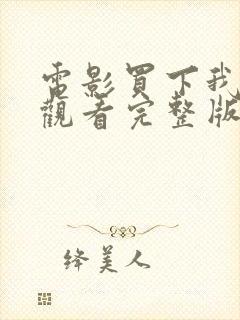 電影買下我
觀看完整版
绛美人